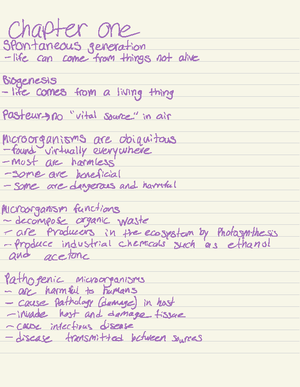 Chapter one
Spontaneous generation
- life can come from things not alive
Biogenesis
- life comes from a living thing
Pasteur → no "vital source" in air
Microorganisms are ubiquitous
- found virtually everywhere
- Most are harmless
- some are beneficial
- some are dangerous and harmful
Microorganism functions
- decompose organic waste
- are producers in the ecosystem by Photosynthesis
- produce industrial chemicals such as ethanol
and acetone
Pathogenic microorganisms
- are harmful to humans
- cause pathology (damage) in host
- invade host and damage tissue
- cause infectious disease
- disease transmitted between sources